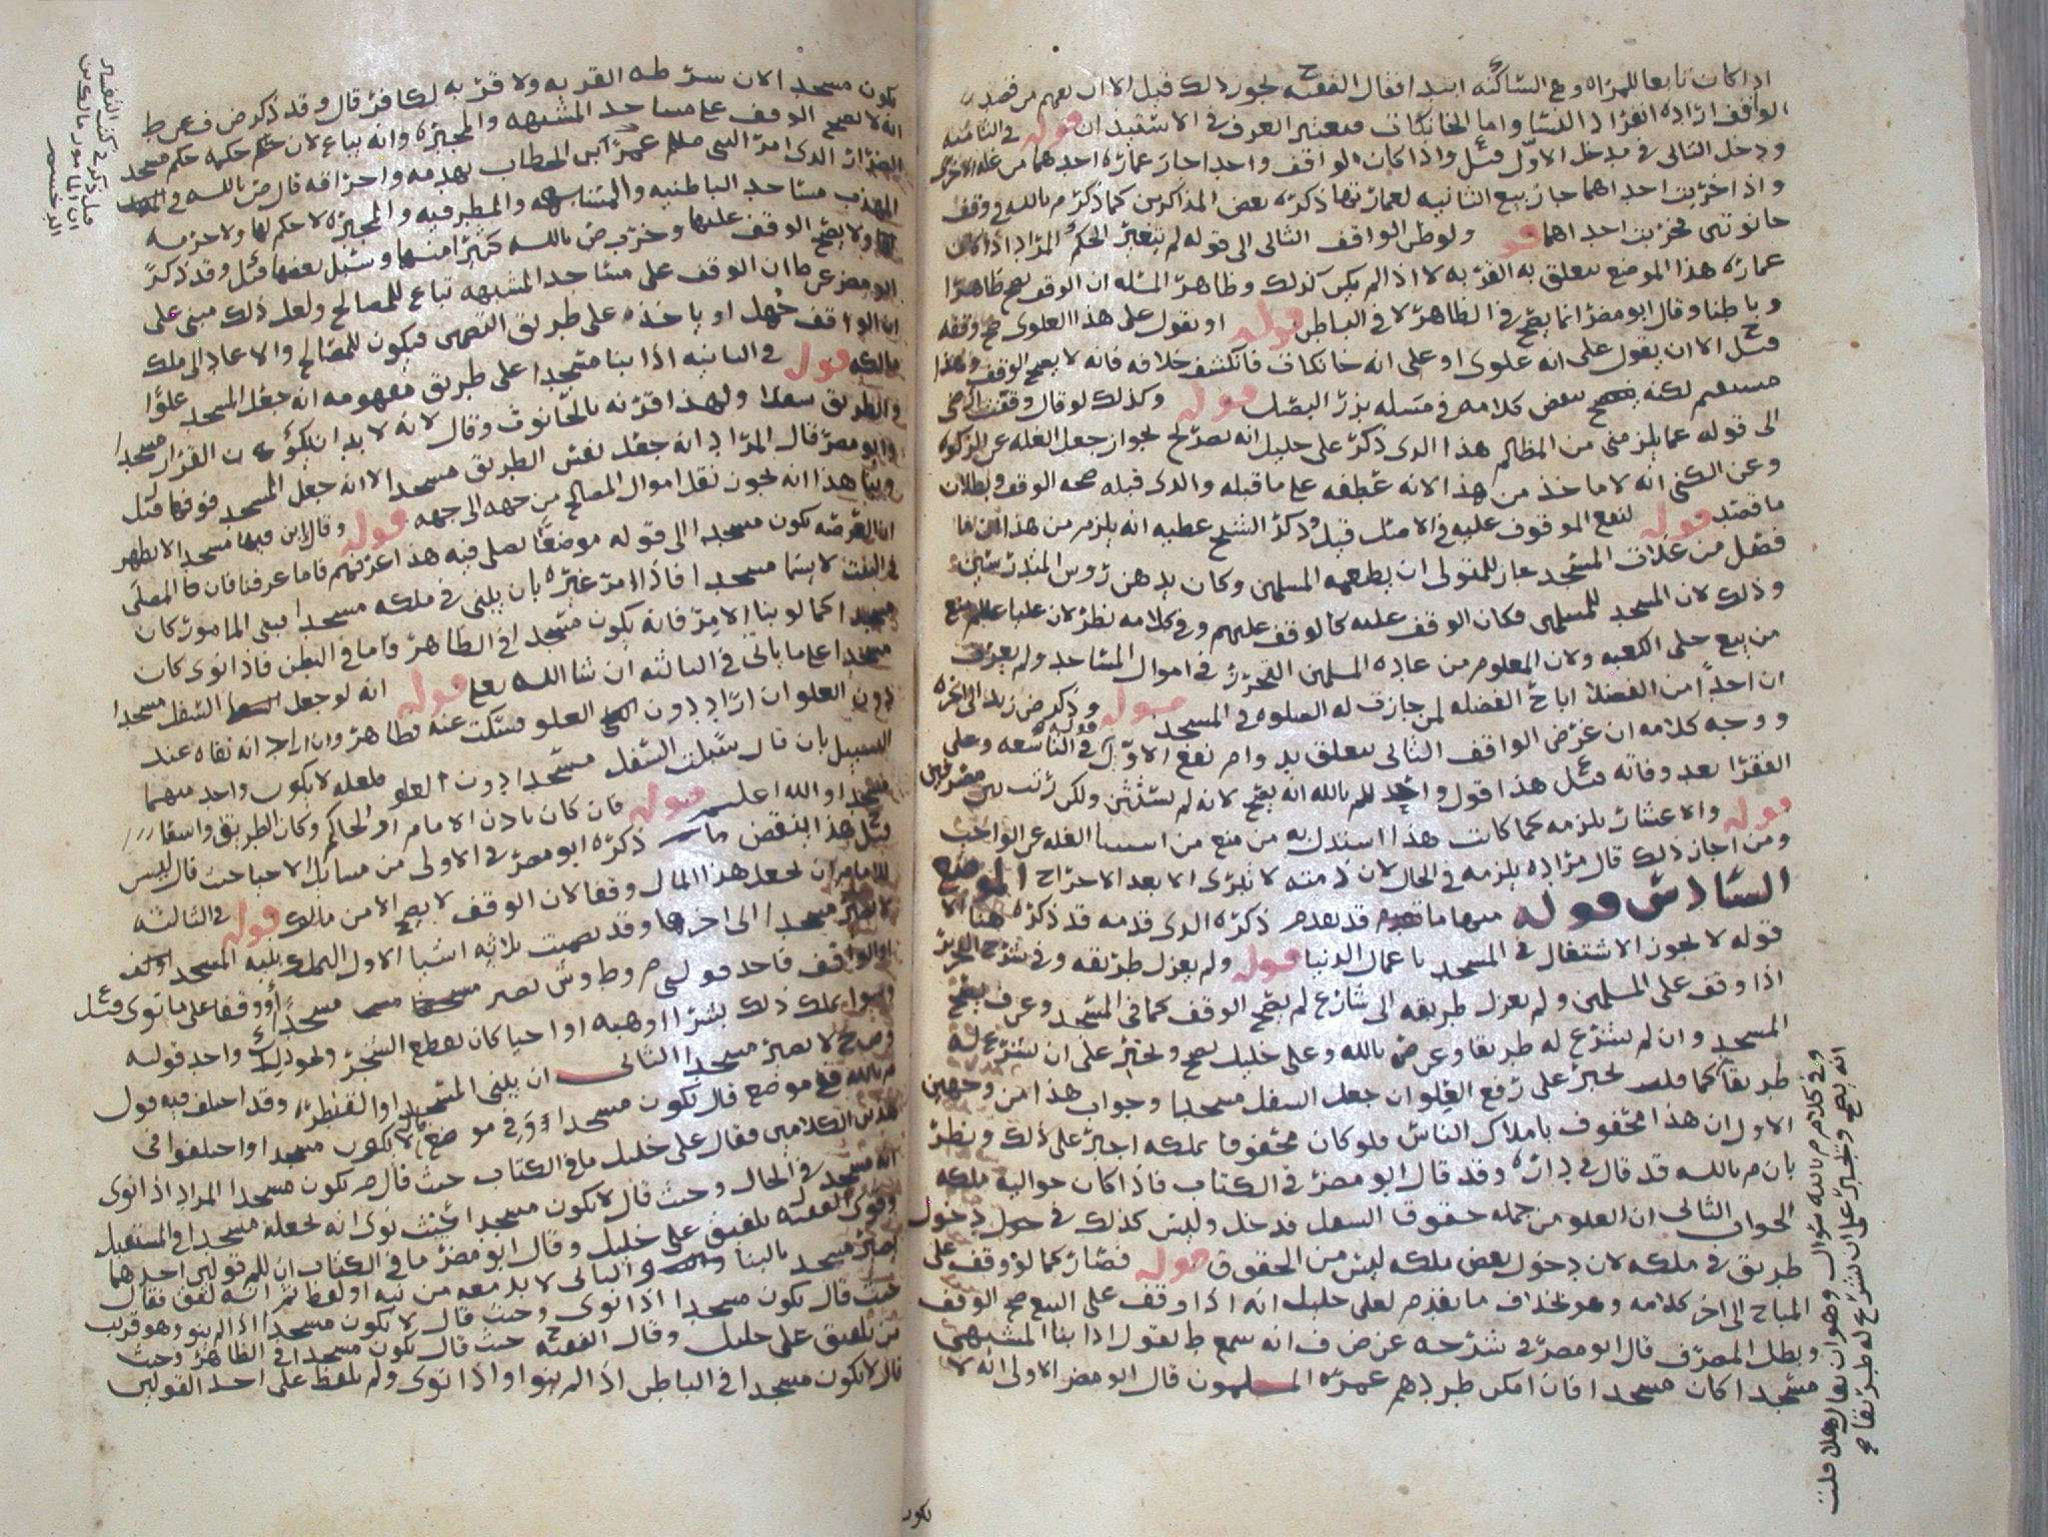 اذا كان تابعا للمراه وهي الساكنه ابتدا فقال الفقيه ح يجوز ذلك قيل الا ان يعهم من قصد
الواقف اراده انفراد النسا واما الخانكات فيعتبر العرف في الاستقبدان قوله في الثامنه
ودخل الثاني في مدخل الاول قيل واذا كان الواقف واحد اجاز عماره احدهما من غله الاخرى
واذا خربت احداهما جاز بيع الثانيه لعمارتها ذكره بعض المذاكرين كما ذكره م بالله في وقف
حانوتين فخربت احداهما قوله ولو ظن الواقف الثاني الى قوله لم يتغير الحكم المراد اذا كان
عماره هذا الموضع يتعلق به القربه لا اذا لم يكن كذلك وظاهر المسله ان الوقف يصح ظاهرا
وباطنا وقال ابو مضر انما يصح في الظاهر لا في الباطن قوله او يقول على هذا العلوي صح وقفه
قيل ح الا ان يقول على انه علوي او على انه خانكاف فانكشف خلافه فانه لا يصح الوقف وهذا
مستقيم لكنه بعض كلامه في مسله بذر البصل قوله وكذلك لو قال وقفت ارضي
الى قوله عما يلزمني من المظالم هذا الذي ذكر على خليل انه يصرح بجواز جعل الغله عن الزكوه
وعن الكني انه لا ماخذ من هذا لانه عطفه على ما قبله والذي قبله صحه الوقف وبطلان
ما قصد قوله لنفع الموقوف عليه في الاصل قيل وذكر الشيخ عطيه انه يلزم من هذا ان ما
فضل من غلات المسجد جاز للمتولي ان يطعمه المسلمين وكان يدهن روس المتدرسين
وذلك لان المسجد للمسلمين فكان الوقف عليه كالوقف عليهم وفي كلامه نظر لان عليا عليلم منع
من بيع حلي الكعبه ولان المعلوم من عاده المسلمين التحرز في اموال المساجد ولم يعرف
ان احدا من الفضلا اباح الفضله لمن جازت له الصلوه في المسجد قوله وذكر ض زيد الى اخره
ووجه كلامه ان غرض الواقف الثاني يتعلق بدوام نفع الاول قوله في التاسعه وعلى
الفقرا بعد وفاته قيل هذا قول واحد للم بالله انه يصح لانه لم يستثن ولكن رتب بين مصرفين
قوله والاعشار يلزمه كما كانت هذا استدل به من منع من استثنا الغله عن الواجب
ومن اجاز ذلك قال مراده يلزمه في الحال لان ذمته لا تبرى الا بعد الاخراج الموضع
السادس قوله منها ما تقدم قد تقدم ذكره الذي قدمه قد ذكره هنا الا
قوله لا يجوز الاشتغال في المسجد باعمال الدنيا قوله ولم يعزل طريقه وفي شرح التحرير
اذا وقف على المسلمين ولم يعزل طريقه الى شارع لم يصح الوقف كما في المسجد وعن ف يصح
المسجد وان لم يشرع له طريقا وعن ض بالله وعلى خليل يصح ويجبر على ان يشرع له
طريقا كما قلنا يجبر على رفع العلو ان جعل السفل مسجدا وجواب هذا من وجهين
الاول ان هذا محفوف باملاك الناس فلو كان محفوفا بملكه اجبر على ذلك ونظر
بان م بالله قد قال في داره وقد قال ابو مضر في الكتاب فاذا كان حواليه ملكه
الجواب الثاني ان العلو من جمله حقوق السفل فدخل وليس كذلك في دخول
طريق في ملكه لان دخول بعض ملكه ليس من الحقوق قوله فصار كما لو وقف على
المباح الى اخر كلامه وهو بخلاف ما تقدم لعلى خليل انه اذا وقف على البيع صح الوقف
وبطل المصرف قال ابو مضر في شرحه عن ض ف انه سمع ط يقول اذا بنا المشبهي
مسجدا كان مسجدا فان امكن طردهم عمره المسلمون قال ابو مضر الاولى انه لا
وفي كلام م بالله سوال وهو ان يقال هلا قلت
انه يصح ويجبر على ان يشرع له طريقا ص
يكون
يكون مسجدا لان شرطه القربه ولا قربه لكافر قال وقد ذكر ض ف عن ط
انه لا يصح الوقف على مساجد المشبهه والمجبره وانه يباع لان حكمه حكم مسجد
الضرار الذي امر النبي صلعم عمر ابن الخطاب بهدمه واحراقه قال ص بالله في
المهذب مساجد الباطنيه والمشبهه والمطرفيه والمجبره لا حكم لها ولا حرمه
ولا يصح الوقف عليها وخرب ص بالله كثيرا منها وسبل بعضها قيل وقد ذكر
ابو مضر عن ط ان الوقف على مساجد المشبهه تباع للمصالح ولعل ذلك مبني على
ان الواقف جهل او ياخذه على طريق التضمين فيكون للمصالح والا عاد الى ملك
مالكه قوله في الثانيه اذا بنا مسجدا على طريق مفهومه انه جعل المسجد علوا
والطريق سفلا ولهذا قرنه بالحانوت وقال لانه لا بد ان يكون القرار مسجدا
وابو مضر قال المراد انه جعل نفس الطريق مسجدا لا انه جعل المسجد فوقها قيل
وبنا هذا انه يجوز نقل اموال المصالح من جهه الى جهه قوله وقال ابن فيها مسجد الا يظهر
ان العرصه تكون مسجدا الى قوله موضعا يصلى فيه هذا عرفهم فاما عرفنا فان المصلى
في البيت لا يسما مسجدا فاذا امر غيره بان يبني في ملكه مسجدا فبنى المامور كان
مسجدا كما لو بنا الامر فانه يكون مسجدا في الظاهر واما في الباطن فاذا نوى كان
مسجدا على ما ياتي في الثالثه ان شا الله تعلى قوله انه لو جعل السفل مسجدا
دون العلو ان اراد بدون العلو فسكت عنه فظاهر وان اراد انه نفاه عند
السبيل بان قال سبلت السفل مسجدا دون العلو فلعله لا يكون واحد منهما
مسجدا والله اعلم قوله فان كان باذن الامام او الحاكم وكان الطريق واسعا
قيل ح هذا ينقض ما ذكره ابو مضر في الاولى من مسايل الاحيا حيث قال ليس
للامام ان يجعل هذا المال وقفا لان الوقف لا يصح الا من مالك قوله في الثالثه
لا يصير مسجدا الى اخرها وقد تضمنت ثلاثه اشيا الاول التملك بنيه المسجد او لف
او الواقف فاحد قولي م وط وش يصير مسجدا او وقفا على ما نوى قيل
وسوا يملك ذلك بشرا او هبه او احيا كان يقطع الشجر ونحو ذلك واحد قوليه
وص ح لا يصير مسجدا الثاني ان يبني المسجد او القنطره وقد اختلف فيه قول
م بالله ففي موضع قال يكون مسجدا وفي موضع قال لا يكون مسجدا واختلفوا في
هذين الكلامين فقال على خليل ما في الكتاب حيث قال م يكون مسجدا المراد اذا نوى
انه مسجد في الحال وحيث قال لا يكون مسجدا حيث نوى انه يجعله مسجدا في المستقبل
وقوى الفقيه تلفيق على خليل وقال ابو مضر ما في الكتاب ان للم قولين احدهما
يصير مسجد بالبنا والثاني لا بد معه من نيه او لفظ ثم انه لفق فقال
حيث قال يكون مسجدا اذا نوى وحيث قال لا يكون مسجدا اذا لم ينو وهو قريب
من تلفيق على خليل وقال الفقيه ح حيث قال يكون مسجدا في الظاهر وحيث
قال لا يكون مسجدا في الباطن اذا لم ينو او اذا نوى ولم يلفظ على احد القولين